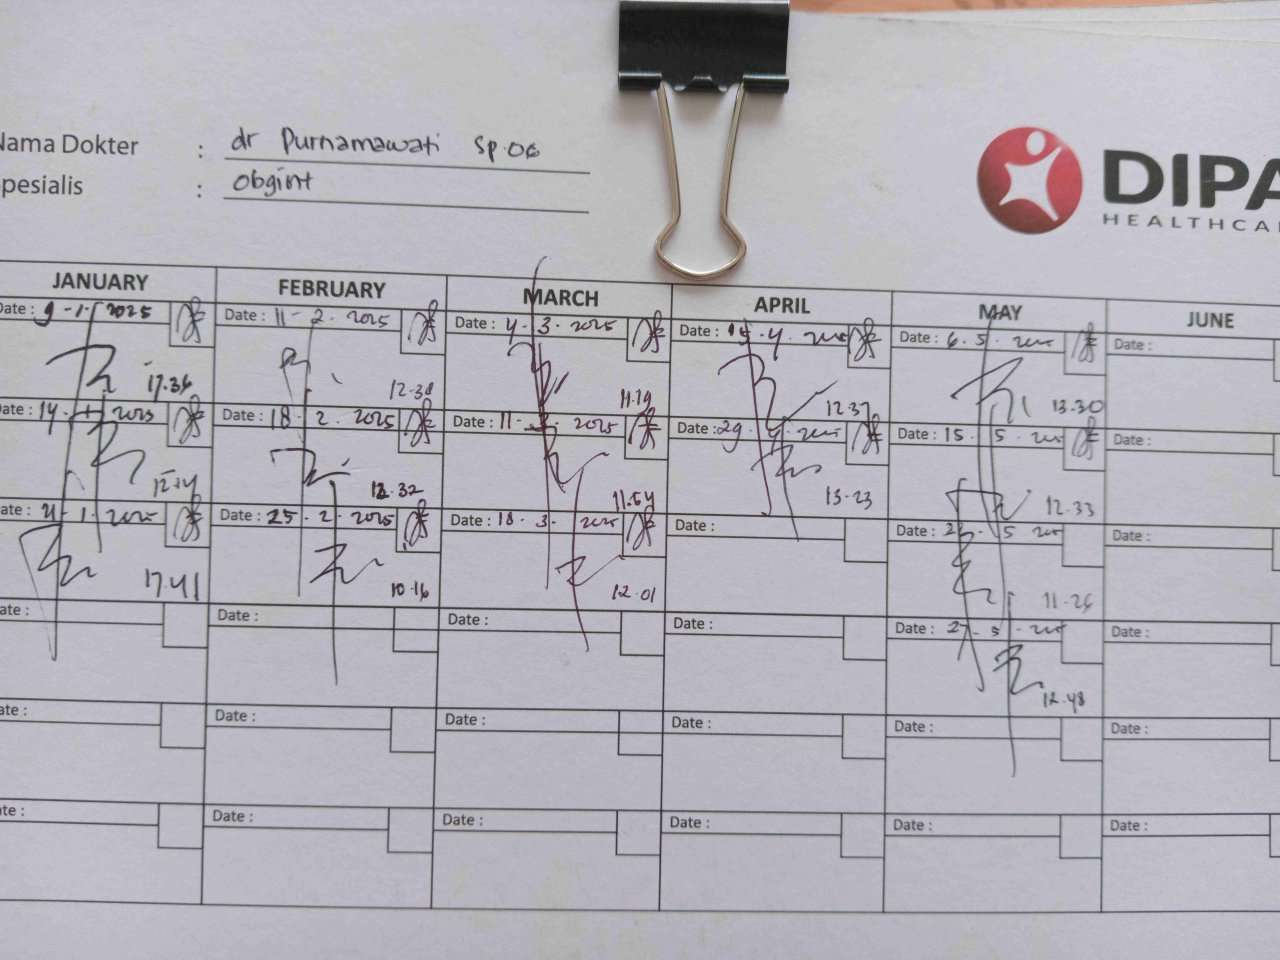 Nama Dokter : dr Purnamawati Sp.OG
Spesialis : Obgint
DIPA
HEALTHCA
JANUARY FEBRUARY MARCH APRIL MAY JUNE
Date : 9-1-2025 Date : 11-2-2025 Date : 4-3-2025 Date : 15-4- Date : 6-5- Date :
17.36 12.38 11.19 12.37 13.30
Date : 14-1-2025 Date : 18-2-2025 Date : 11-3-2025 Date : 29-4- Date : 15-5- Date :
12.14 12.32 11.54 13-23 12.33
Date : 21-1-2025 Date : 25-2-2025 Date : 18-3-2025 Date : Date : 5 Date :
17.41 10.16 12.01 11-26
Date : Date : Date : Date : Date : 27-5- Date :
12.48
Date : Date : Date : Date : Date : Date :
Date : Date : Date : Date : Date : Date :